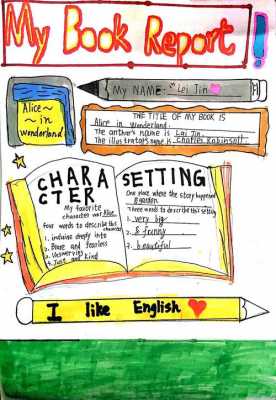 My Book Report!
My NAME: Lei Jin
Alice~
~ in
wonderland
THE TITLE OF MY BOOK IS
Alice in wonderland.
The author's name is Lei Jin.
The illustrator's name is Charles Robinson.
CHARACTER
My favorite
character was Alice.
Four words to describe this character
1. inquire deeply into
2. Brave and fearless
3. Unswerving
4. Just and kind
SETTING
One place where the story happened
garden
Three words to describe this setting
1. very big
2. & franny
3. beautiful
I like English